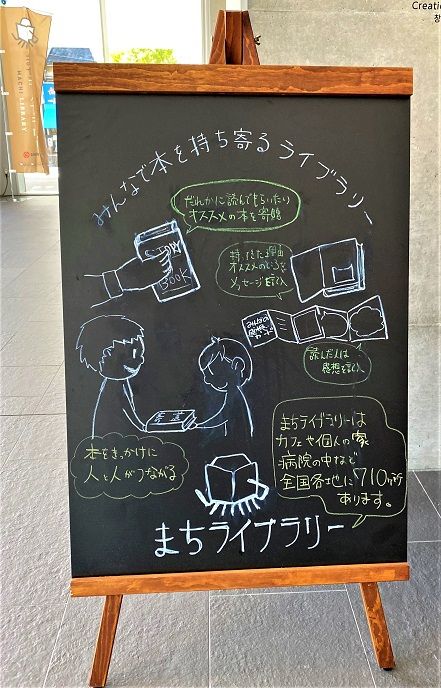 Creatio
みんなで本を持ち寄るライブラリー
だれかに読んでもらいたり
オススメの本を寄贈
BOOK
持ってきた理由
オススメのところを
メッセージを記入
みんなの
感想
カード
読んだ人は
感想を記入
まちライブラリーは
カフェや個人の家
病院の中など
全国各地に710ヶ所
あります。
本をきっかけに
人と人がつながる
まちライブラリー
MACHI LIBRARY